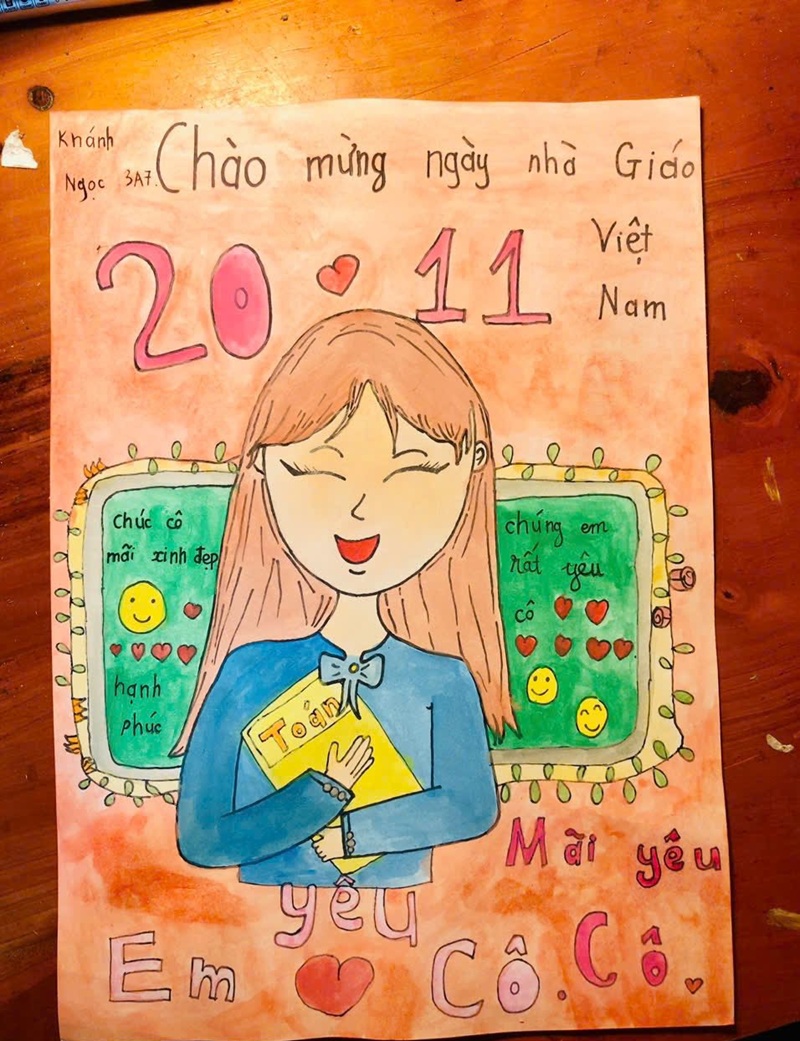 Khánh
Ngọc 3A7.
Chào mừng ngày nhà Giáo
Việt
Nam
20 11
chúc cô
mãi xinh đẹp
hạnh
phúc
chúng em
rất yêu
cô
Toán
Mãi yêu
Cô.
yêu
Em Cô.